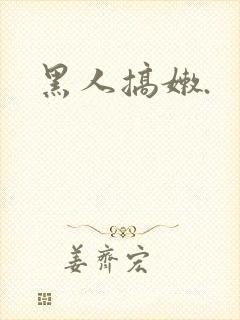 黑人搞嫩.
姜齐宏